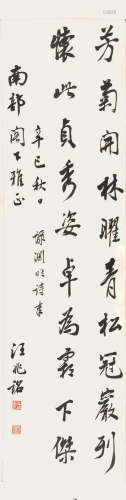 芳菊開林曜青松冠巖列
懷此貞秀姿卓為霜下傑
辛巳秋日 錄淵明詩奉
南部閣下雅正
汪兆銘